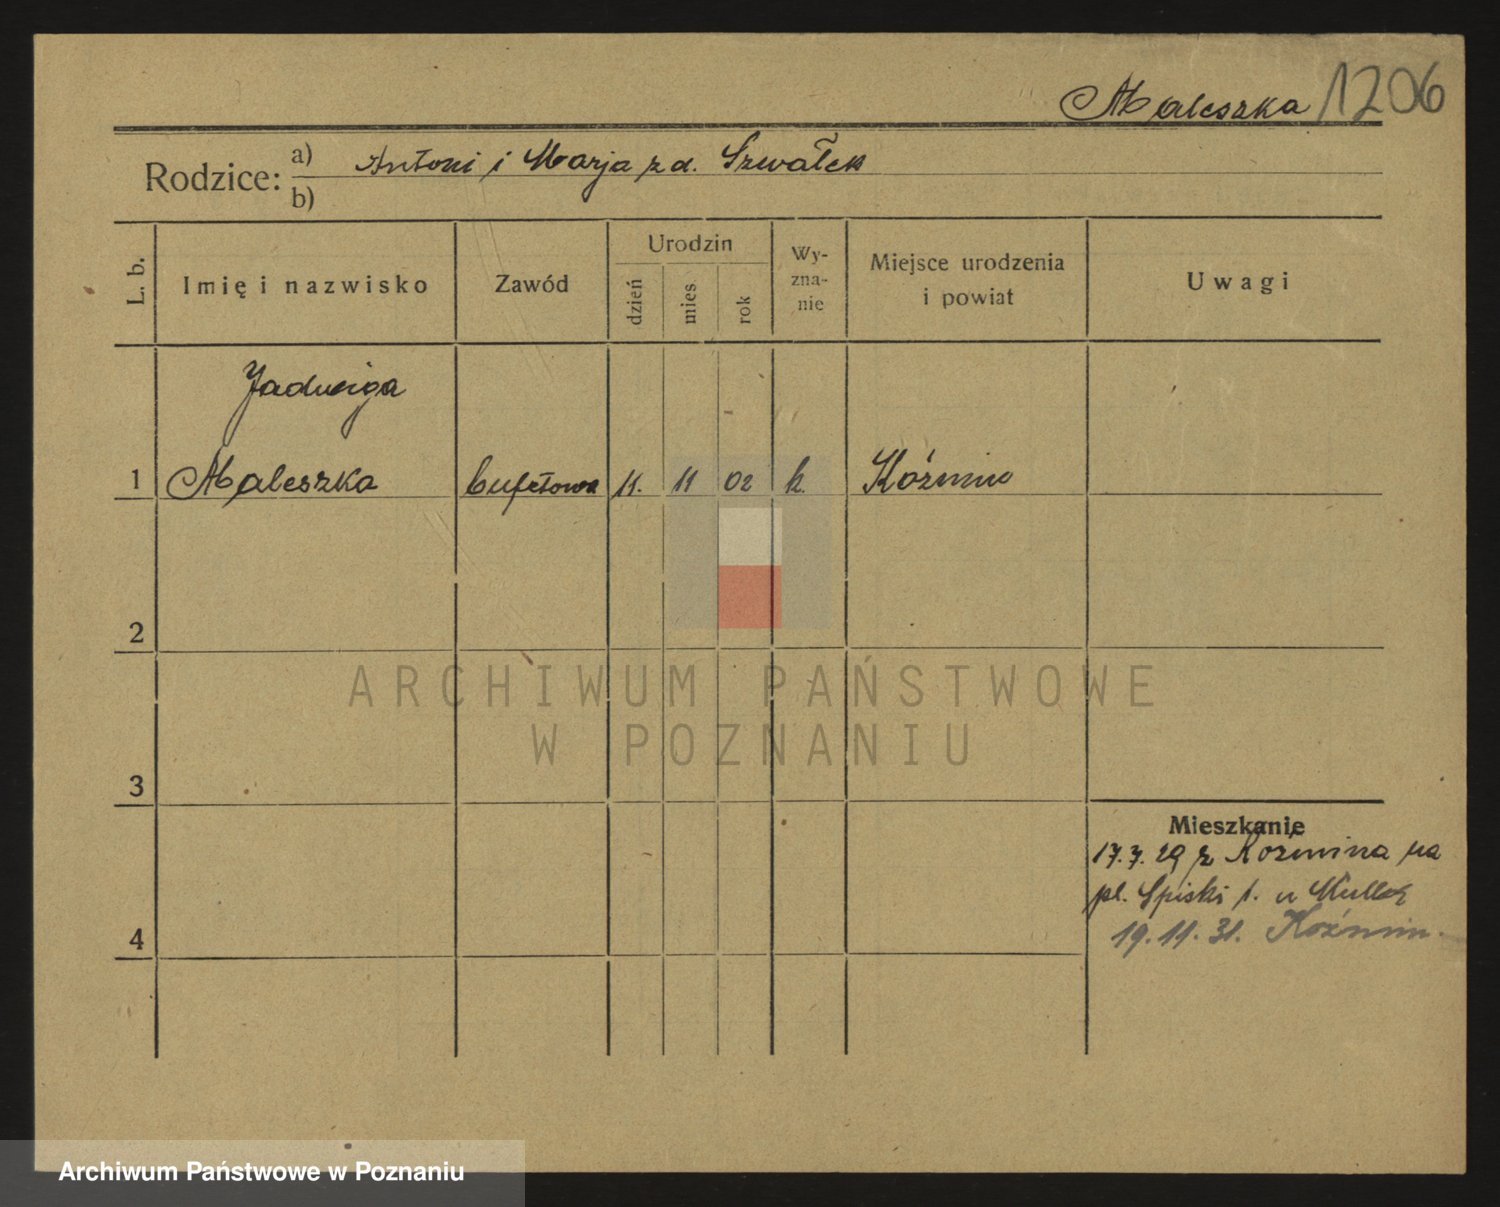 Maleszka 1206
Rodzice: a) Antoni i Marja z d. Szwałek
b)
L. b.
Imię i nazwisko
Zawód
Urodzin
dzień
mies
rok
Wy-
zna-
nie
Miejsce urodzenia
i powiat
Uwagi
Jadwiga
1 Maleszka bufetowa 11. 11 02 k. Koźmin
2
3
4
Mieszkanie
17.7.29 z Koźmina na
pl. Spiski 1. u
19.11.31. Koźmin.
ARCHIWUM PAŃSTWOWE
W POZNANIU
Archiwum Państwowe w Poznaniu